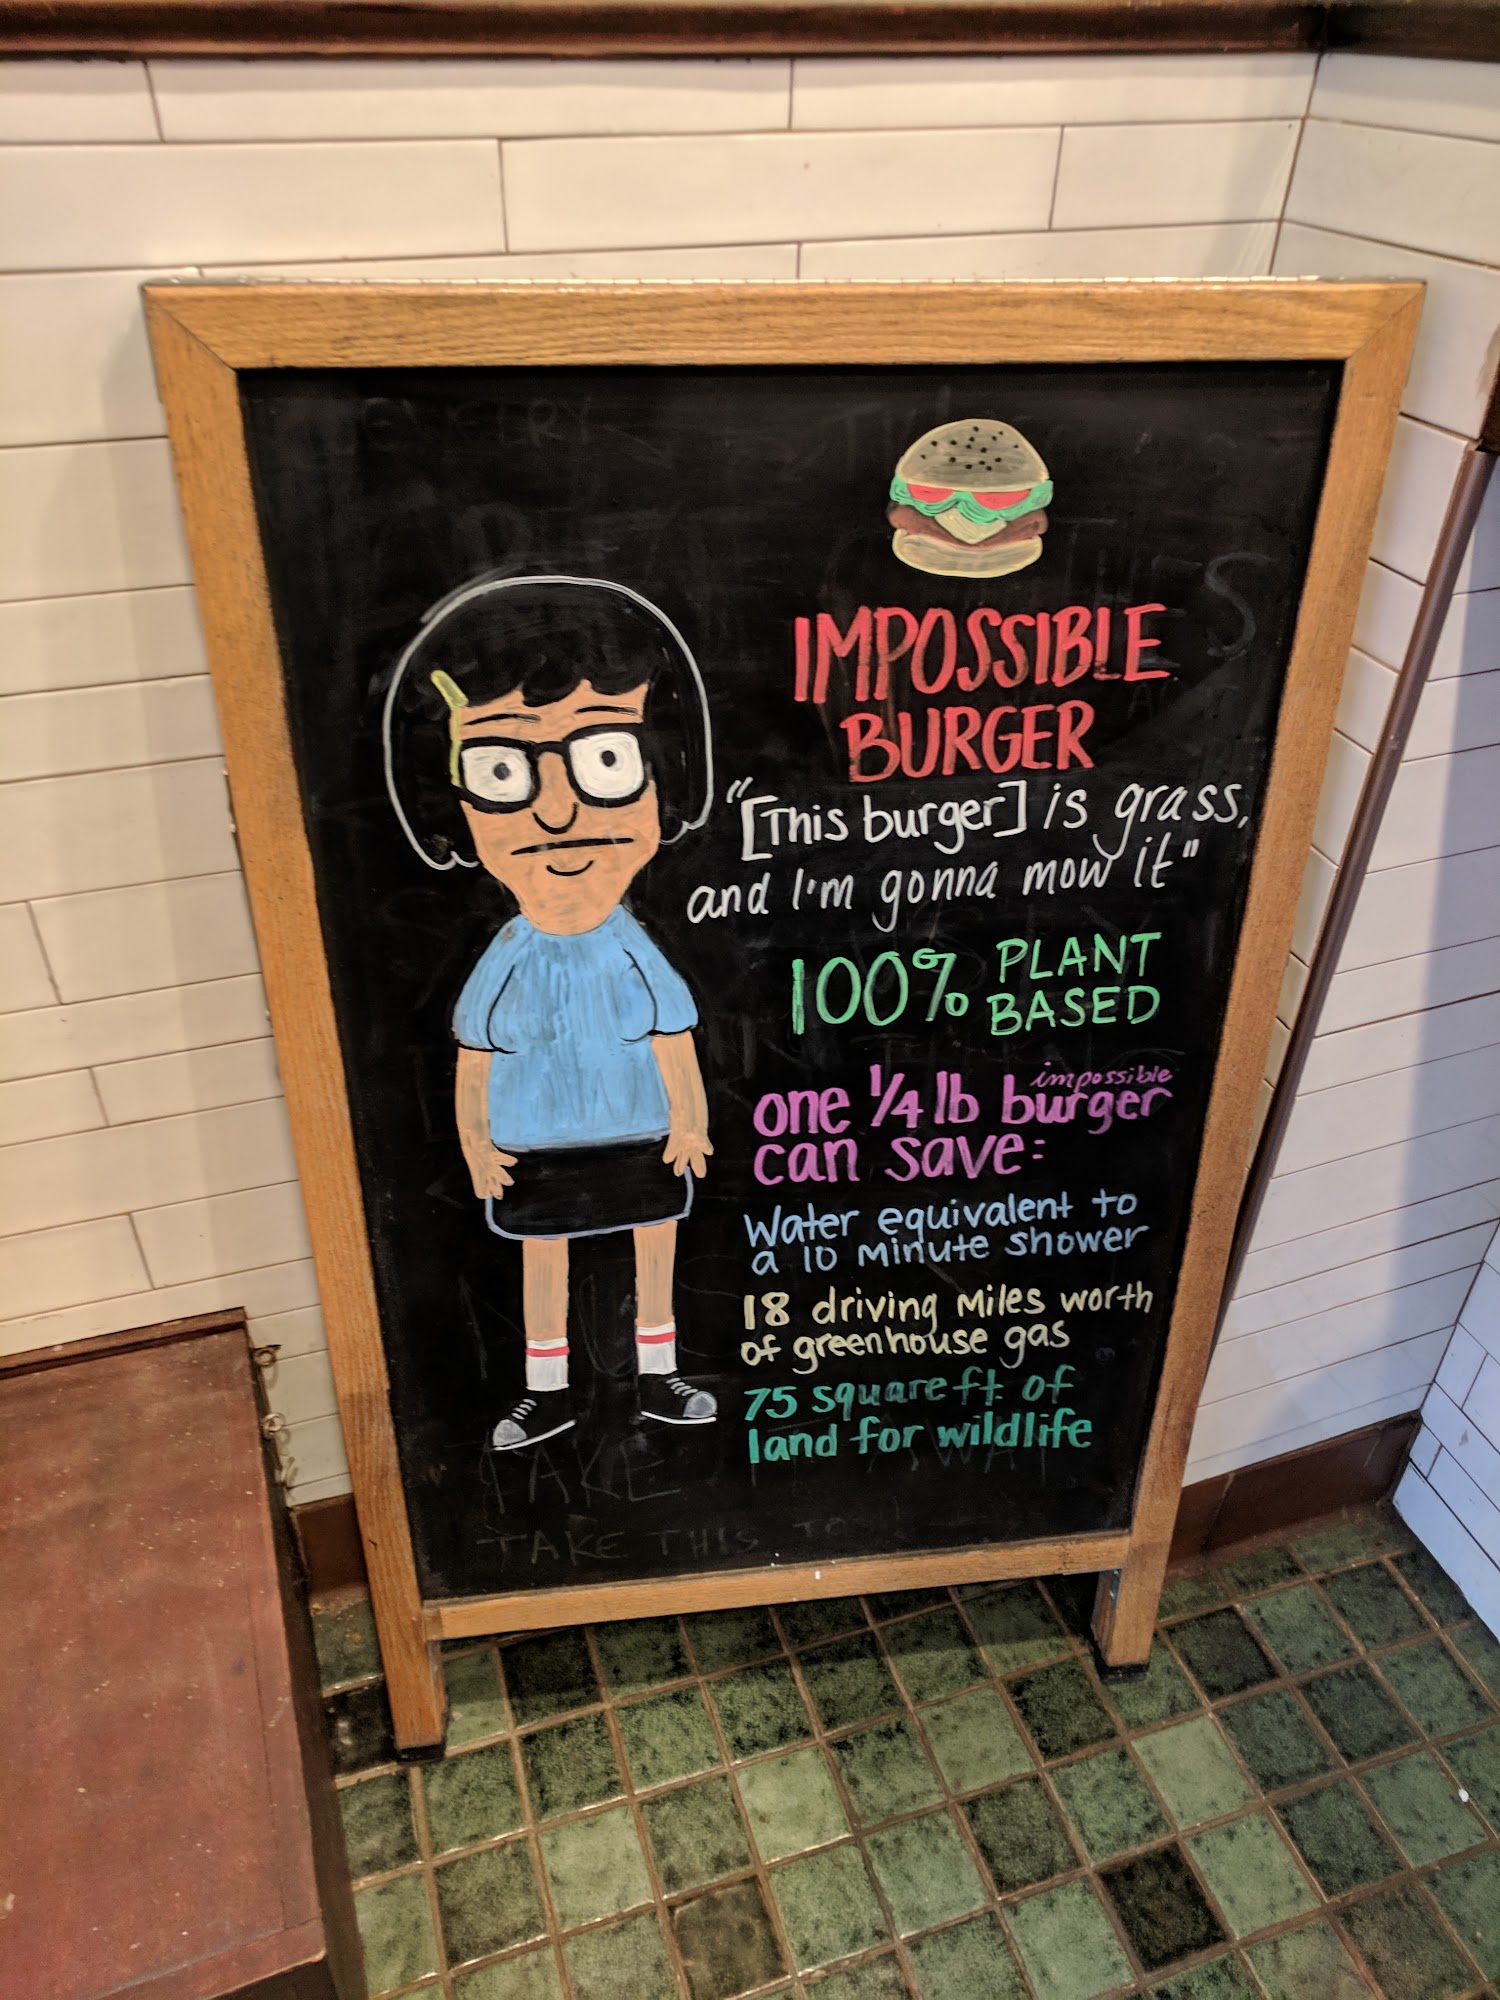 IMPOSSIBLE
BURGER
"[This burger] is grass,
and I'm gonna mow it"
100% PLANT
BASED
one 1/4 lb impossible burger
can save:
Water equivalent to
a 10 minute shower
18 driving miles worth
of greenhouse gas
75 square ft. of
land for wildlife
TAKE
TAKE THIS